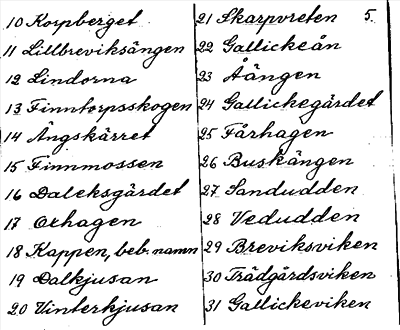 10 Korpberget
11 Lillbreviksängen
12 Lindorna
13 Finntorpsskogen
14 Ängskärret
15 Finnmossen
16 Daleksgärdet
17 Oxhagen
18 Kappen, beb. namn
19 Dalkjusan
20 Vinterkjusan
5.
21 Skarpvreten
22 Gallickeån
23 Åängen
24 Gallickegärdet
25 Fårhagen
26 Buskängen
27 Sandudden
28 Vedudden
29 Breviksviken
30 Trädgårdsviken
31 Gallickeviken